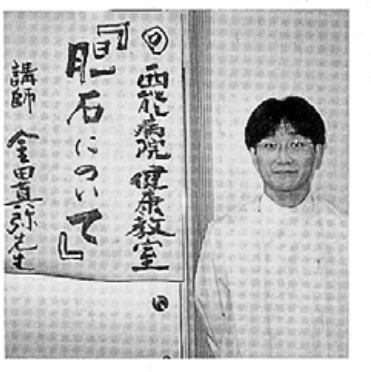 ◎西能病院健康教室
『胆石について』
講師 金田真弥先生